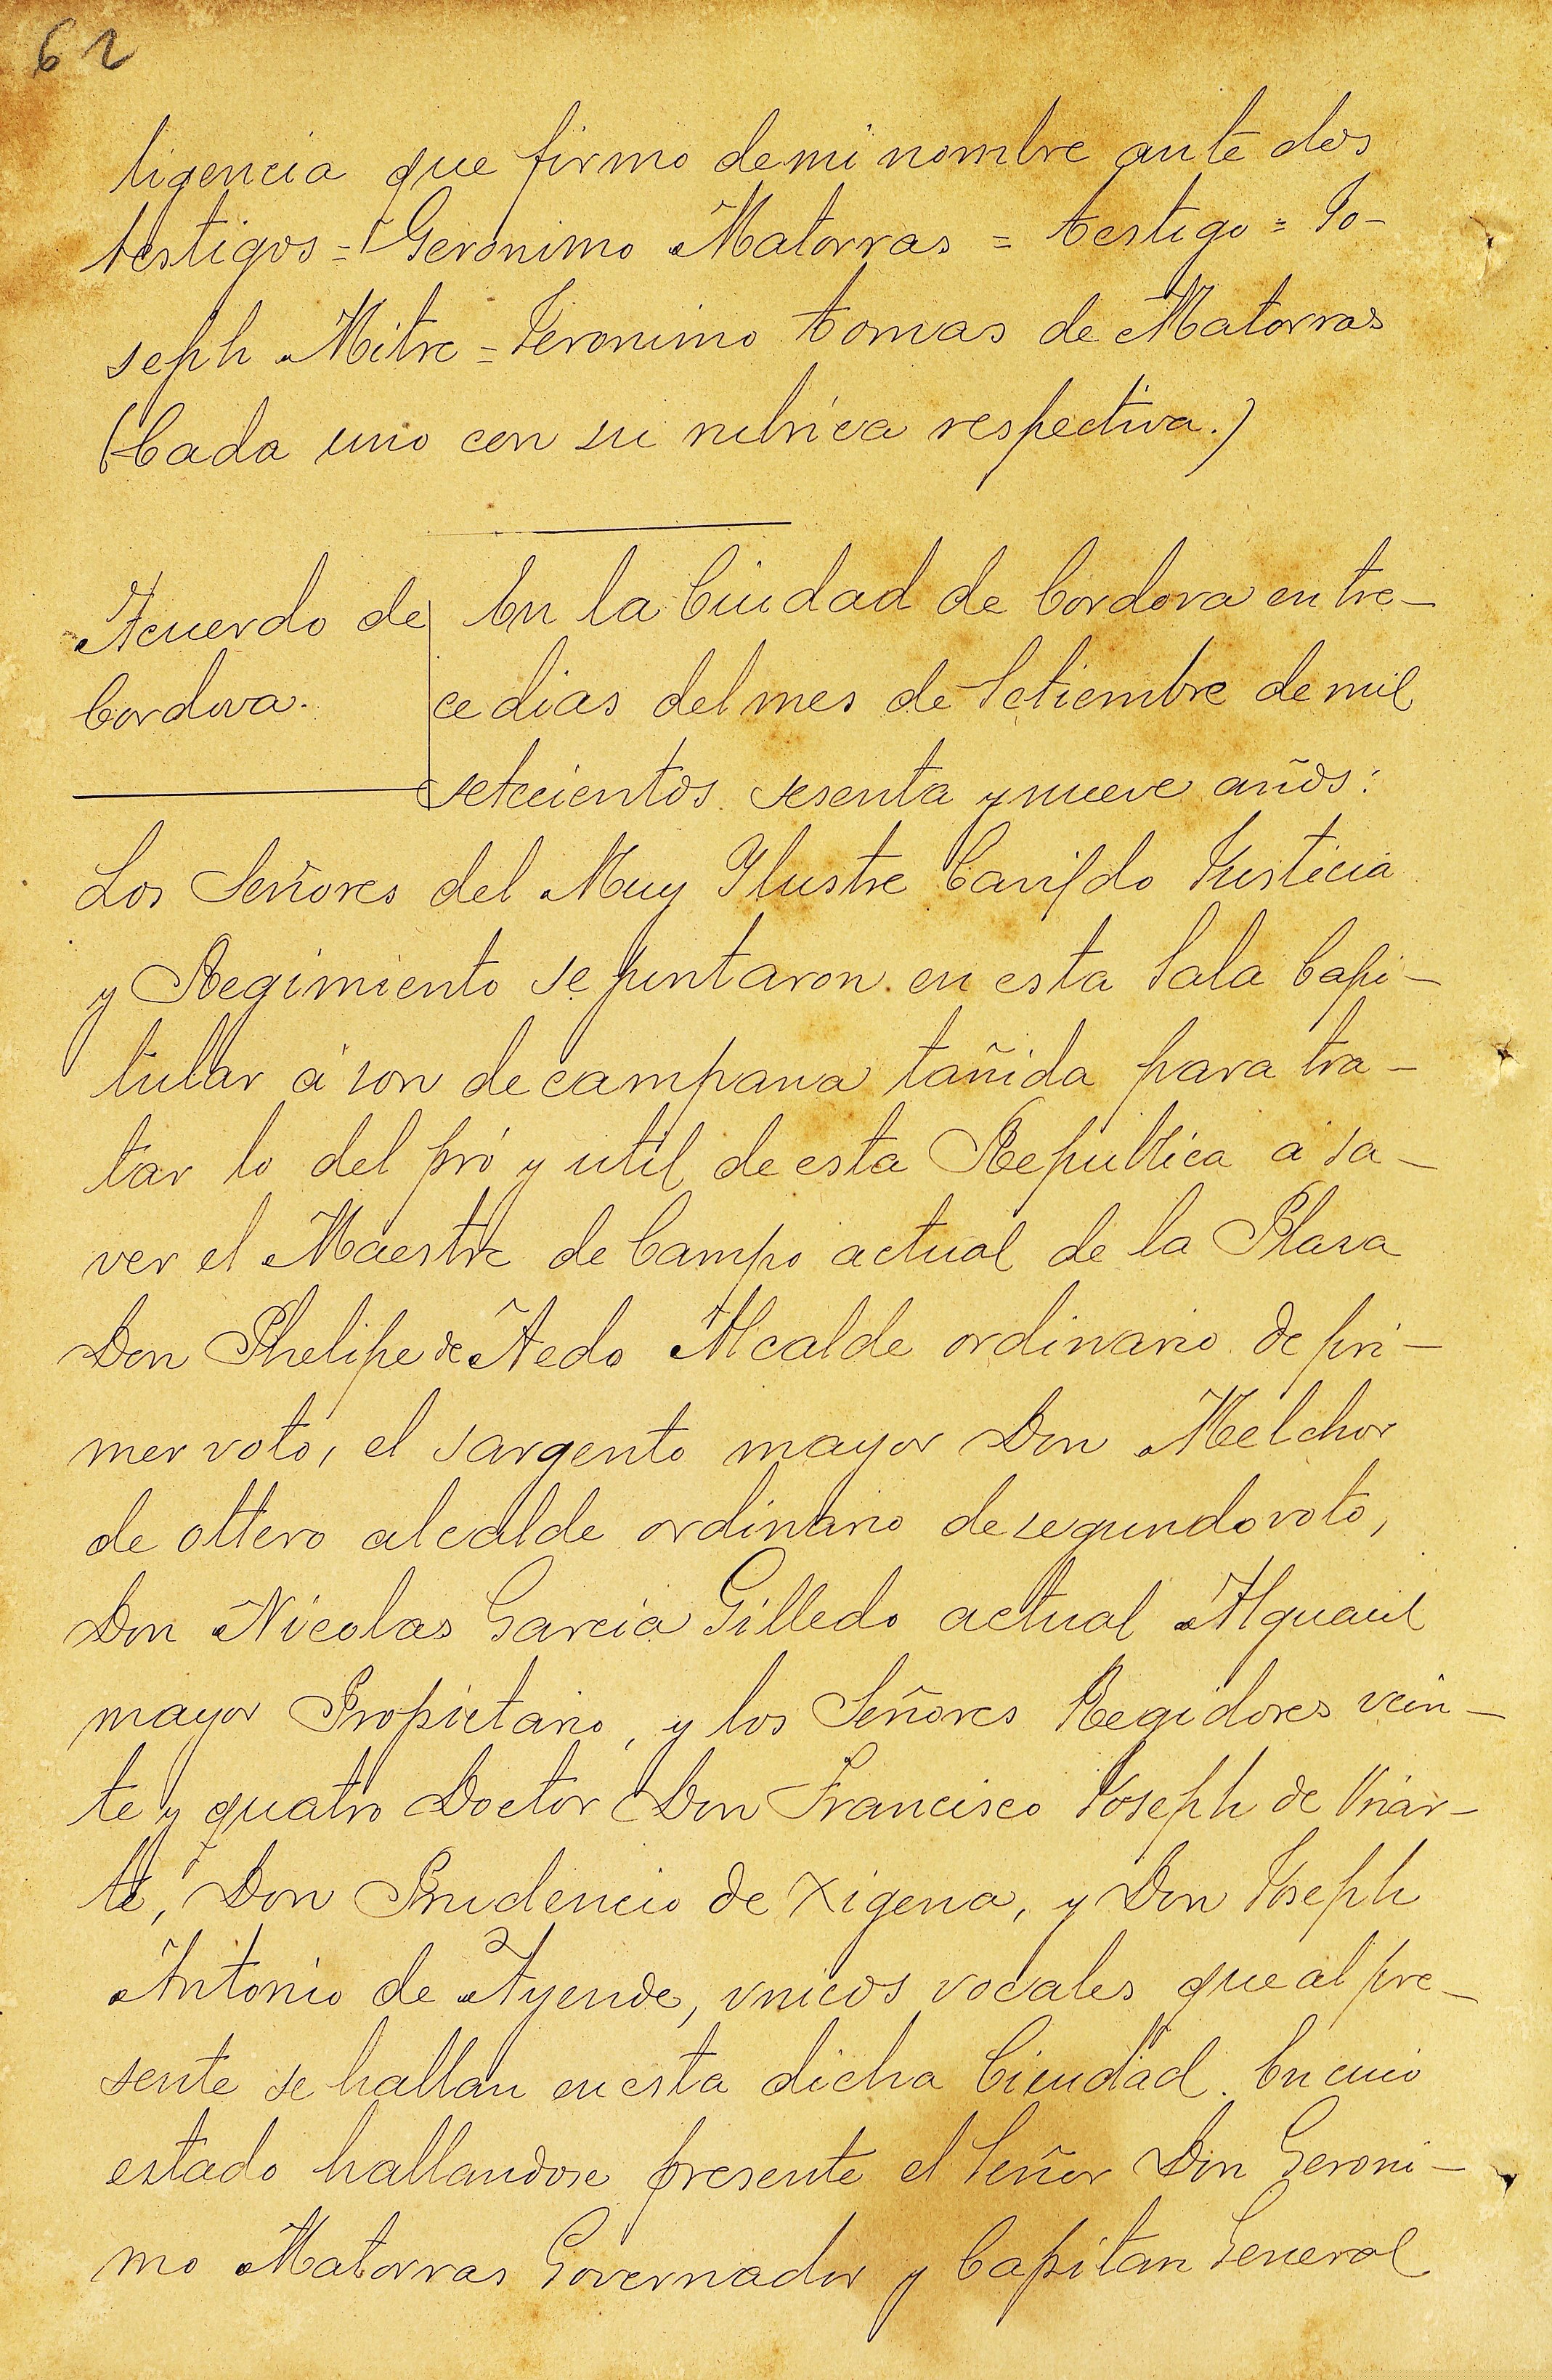 62
ligencia que firmo de mi nombre ante dos
testigos = Geronimo Matorras = testigo = Jo-
seph Mitre = Jeronimo tomas de Matorras
(Cada uno con su rubrica respectiva.)
Acuerdo de
Cordova.
En la Ciudad de Cordova en tre-
ce dias del mes de Setiembre de mil
setecientos sesenta y nueve años:
Los Señores del Muy Ylustre Cavildo Justicia
y Regimiento se juntaron en esta Sala Capi-
tular á son de campana tañida para tra-
tar lo del pró y util de esta Republica á sa-
ver el Maestre de Campo actual de la Plasa
Don Phelipe de Aedo Alcalde ordinario de pri-
mer voto, el sargento mayor Don Melchor
de ottero alcalde ordinario de segundo voto,
Don Nicolas Garcia Gilledo actual Alguacil
mayor Propietario, y los Señores Regidores vein-
te y quatro Doctor Don Francisco Joseph de Uriar-
te, Don Prudencio de Xigena, y Don Joseph
Antonio de Ayende, vnicos vocales que al pre-
sente se hallan en esta dicha Ciudad. En cuio
estado hallandose presente el Señor Don Geroni-
mo Matorras Governador y Capitan General